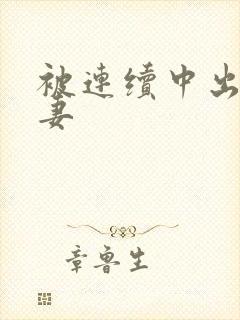 被连续中出
妻
章鲁生